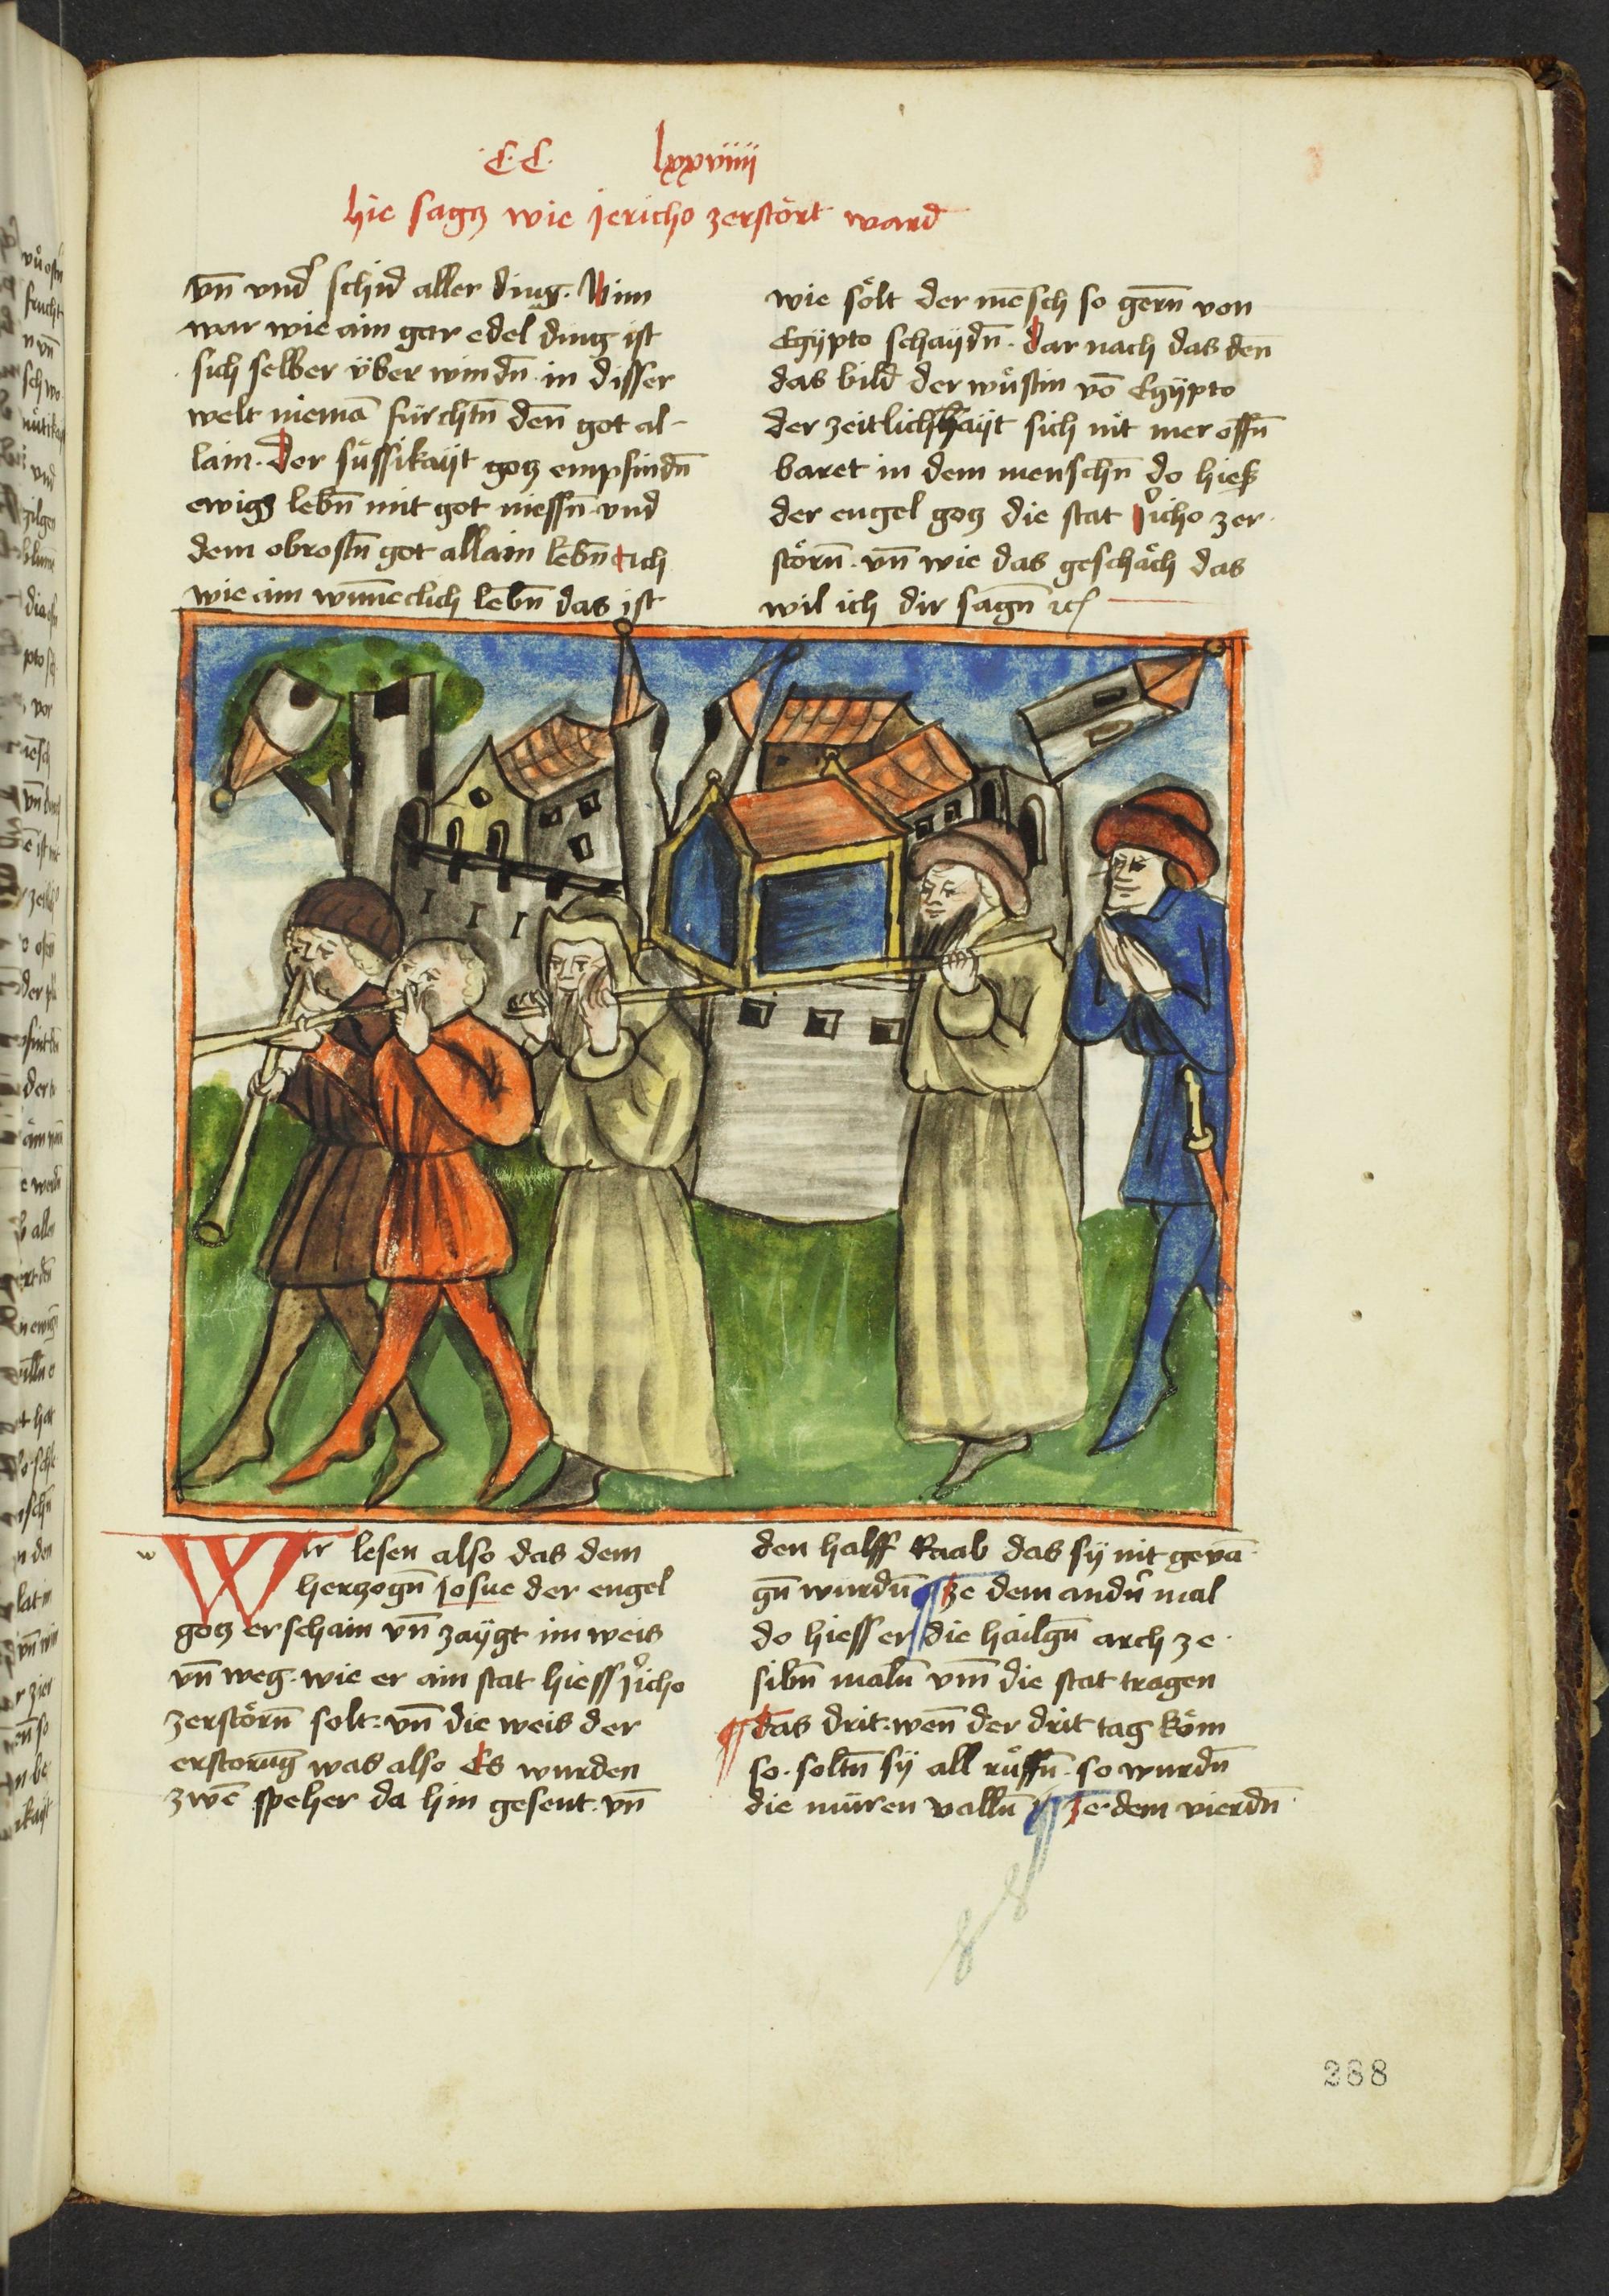 C·C· lxxviiii
hie sagtz wie jericho zerstört ward
vn̄ vnd' schid aller ding. Nim
war wie ain gar edel ding ist
sich selber über windn̄ in disser
welt niemā fürchtn̄ den̄ got al-
lain. Der süssikaÿt gotz empfindn̄
ewigs lebn̄ mit got niessn̄ vnd
dem obrostn̄ got allain lebn̄ Ich
wie ain wun̄eclich lebn̄ das ist
wie sölt der mēsch so gern̄ von
Egÿpto schaÿdn̄. Dar nach das den̄
das bild der wüstin vō Egÿpto
der zeitlichhaÿt sich nit mer offn̄
baret in dem menschn̄ do hieß
der engel gotz die stat j'icho zer-
störn̄. vn̄ wie das geschäch das
wil ich dir sagn̄ ꝛc
w
Wir lesen also das dem
hertzogn̄ josue der engel
gotz erschain vn̄ zaÿgt im weis
vn̄ weg. wie er ain stat hiess j'icho
zerstörn̄ solt: vn̄ die weis der
erstorūg was also Es wurden
zwē speher da hin gesent. vn̄
den halff Raab das sÿ nit gevā-
gn̄ wurdn̄ ¶ Ze dem andn̄ mal
do hiess er die hailgn̄ arch ze
sibn̄ maln̄ vm̄ die stat tragen
¶ das drit. wen̄ der drit tag köm
so. soltn̄ sÿ all rüffn̄. so wurdn̄
die müren valln̄ ¶ Ze dem vierdn̄
288